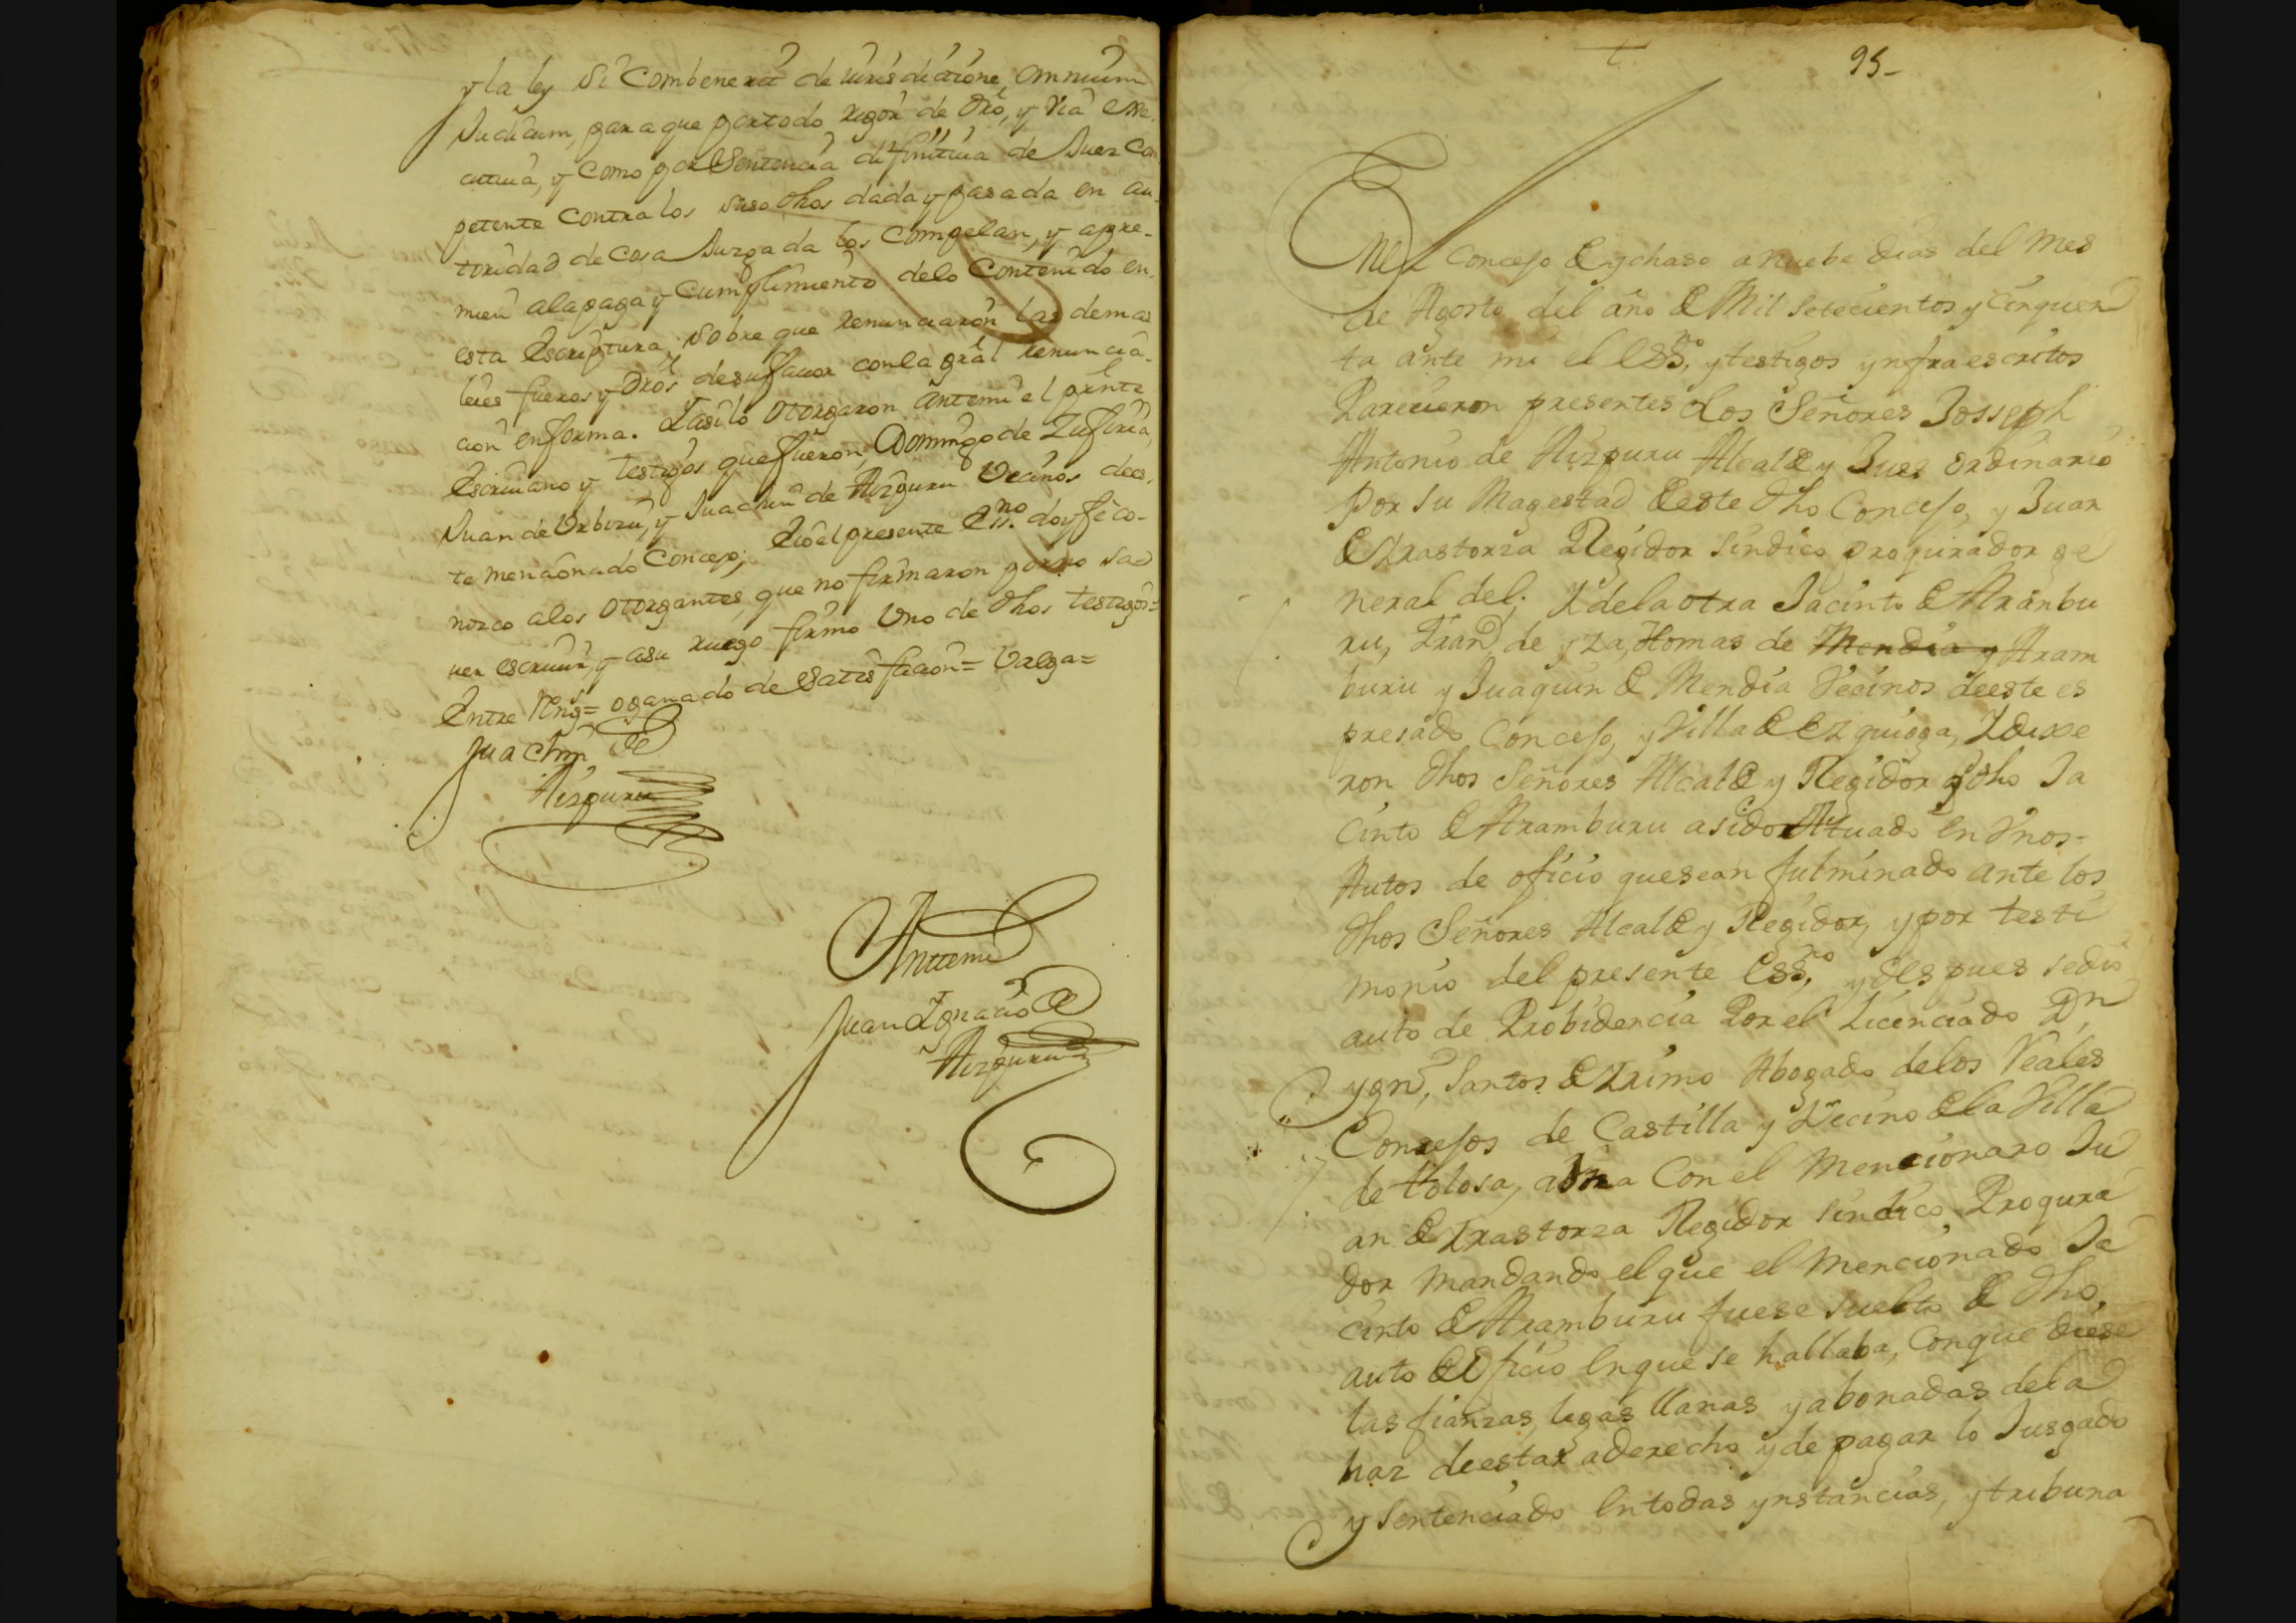 y la ley Si Combenerit de iurisdictione, omnium
Judicum, para que por todo rigor de dro, y via exe-
cutiua, y como por Sentencia difinitiua de Juez Com
petente contra los suso dhos dada y pasada en au-
toridad de cosa Juzgada los compelan, y apre-
mien ala paga y cumplimiento delo contenido en
esta Escriptura, sobre que renunciaron las demas
leies fueros y dros desu fauor con la gral renuncia-
cion en forma. I asi lo otorgaron ante mi el preste
Escriuano y testigos que fueron, Domingo de Zufiria,
Juan de Urbizu, y Juachin de Aizpuru Vecinos dees-
te mencionado Concejo; Eio el presente Essno. doy fe co-
nozco alos otorgantes, que no firmaron por no sa-
uer escriuir, y asu ruego firmo Uno de dhos testigos=
Entre Rengs= o ganado de satisfacion= Valga=
Juachin de
Aizpuru
Anttemi
Juan Ignacio de
Aizpuru
95-
En el Concejo de ychaso a nuebe dias del mes
de Agosto del año de Mil setecientos y Cinquen
ta ante mi el essno. y testigos ynfraescritos
Parecieron presentes Los Señores Josseph
Antonio de Aizpuru Alcalde y Juez ordinario
por su Magestad deeste dho Concejo, y Juan
de Yrastorza Regidor sindico procurador ge
neral del; I dela otra Jacinto de Aranbu
ru, Fran, de yza, Thomas de Mendia y Aram
buru y Juaquin de Mendia Vecinos deeste es
presado Concejo, y Villa de Ezquioga, I dixe
ron dhos Señores Alcalde y Regidor q dho Ja
cinto de Aramburu a sido Actuado en Vnos-
Autos de oficio quesean fulminado ante los
dhos Señores Alcalde y Regidor, y por testi
monio del presente essno, y despues sedio
auto de Probidencia Por el Licenciado Dn
ygn, Santos de Yrimo Abogado delos Reales
Consejos de Castilla y Vecino dela Villa
de tolosa, a Con el Mencionaro Ju
an de Yrastorza Regidor sindico Procura
dor mandando el que el Mencionado Ja
cinto de Aramburu fuese suelto de dho,
auto de Oficio en que se hallaba, con que diese
las fianzas, legas llanas y abonadas dela
haz deestar aderecho y de pagar lo Jusgado
y sentenciado en todas ynstancias, y tribuna